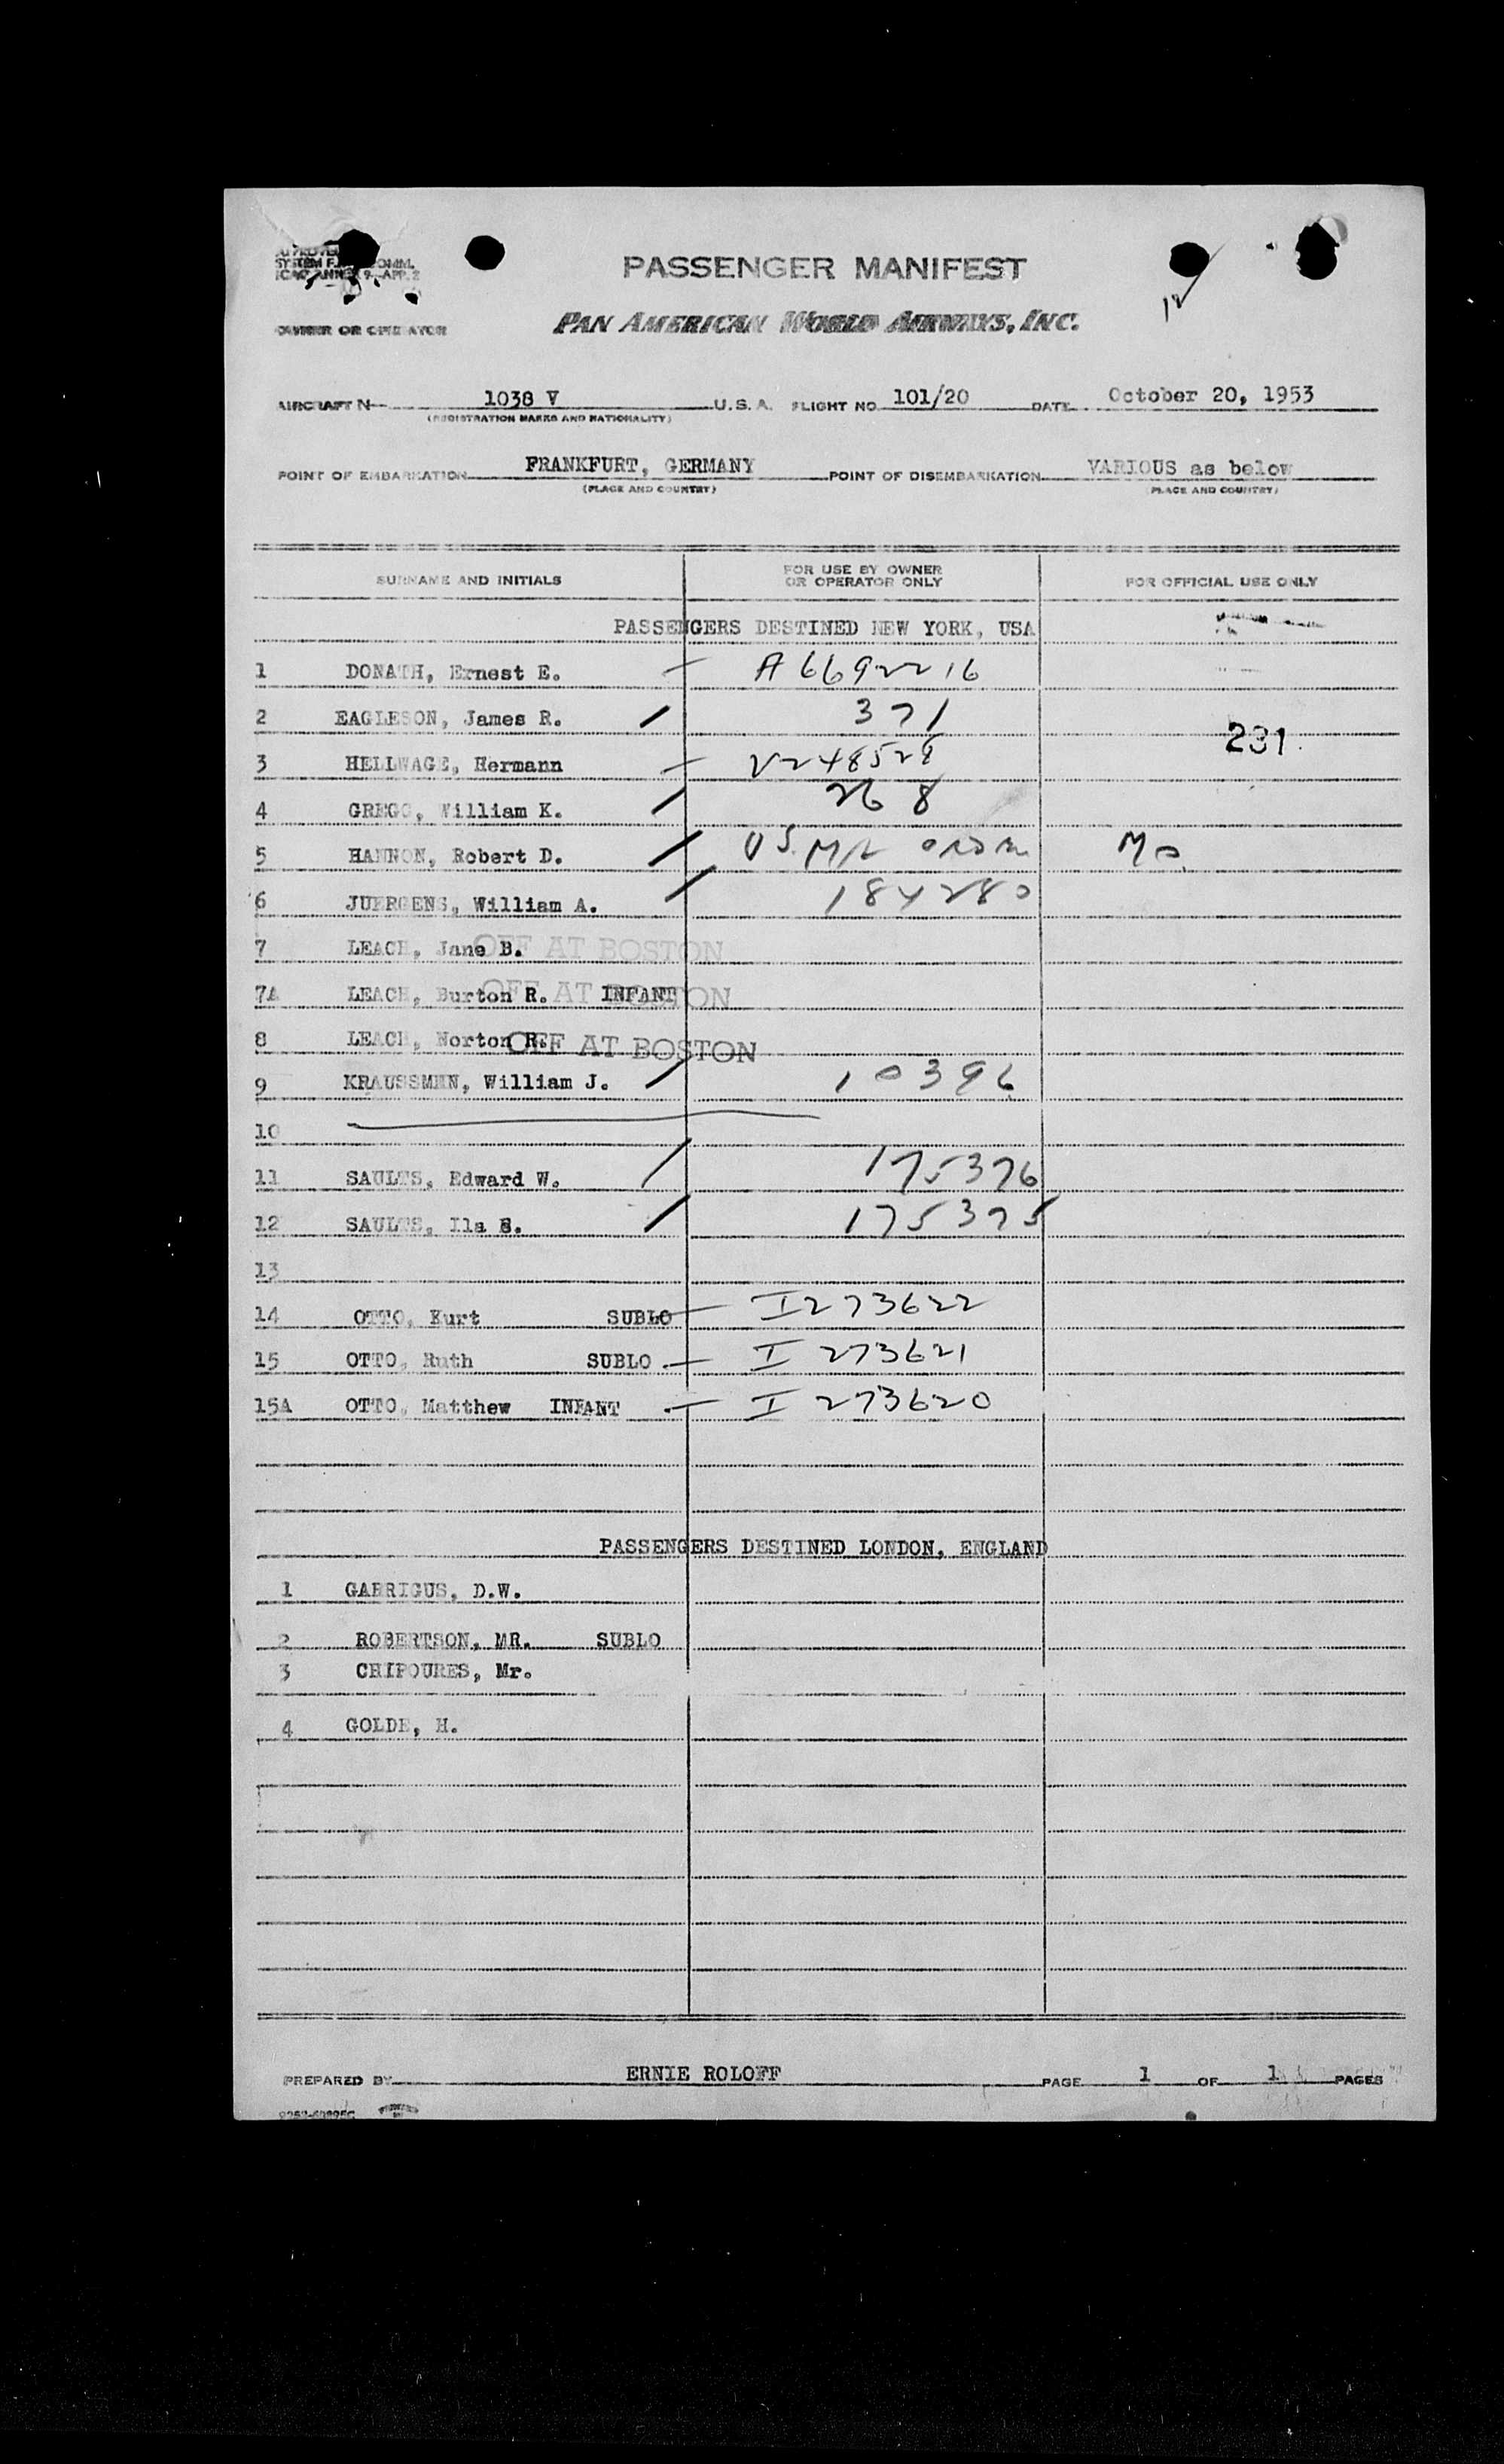 APPROVED
SYSTEM F. COMM.
ICAO ANNEX 9-APP. 2
PASSENGER MANIFEST
OWNER OR OPERATOR
PAN AMERICAN WORLD AIRWAYS, INC.
AIRCRAFT N 1038 V U.S.A. FLIGHT NO 101/20 DATE October 20, 1953
(REGISTRATION MARKS AND NATIONALITY)
POINT OF EMBARKATION FRANKFURT, GERMANY POINT OF DISEMBARKATION VARIOUS as below
(PLACE AND COUNTRY) (PLACE AND COUNTRY)
SURNAME AND INITIALS FOR USE BY OWNER OR OPERATOR ONLY FOR OFFICIAL USE ONLY
PASSENGERS DESTINED NEW YORK, USA
1 DONATH, Ernest E. — A6692216
2 EAGLESON, James R. / 371
231
3 HELLWAGE, Hermann — V248528
4 GREGG, William K. / 268
5 HANNON, Robert D. / US. Mil
6 JUERGENS, William A. / 184280
7 LEACH, Jane B. OFF AT BOSTON
7A LEACH, Burton R. INFANT OFF AT BOSTON
8 LEACH, Norton R. OFF AT BOSTON
9 KRAUSSMEN, William J. / 10396
10
11 SAULTS, Edward W. / 175376
12 SAULTS, Ila S. / 175375
13
14 OTTO, Kurt SUBLO — I273622
15 OTTO, Ruth SUBLO — I 273621
15A OTTO, Matthew INFANT — I 273620
PASSENGERS DESTINED LONDON, ENGLAND
1 GARRIGUS, D.W.
2 ROBERTSON, MR. SUBLO
3 CHIPOURES, Mr.
4 GOLDE, H.
PREPARED BY ERNIE ROLOFF PAGE 1 OF 1 PAGES